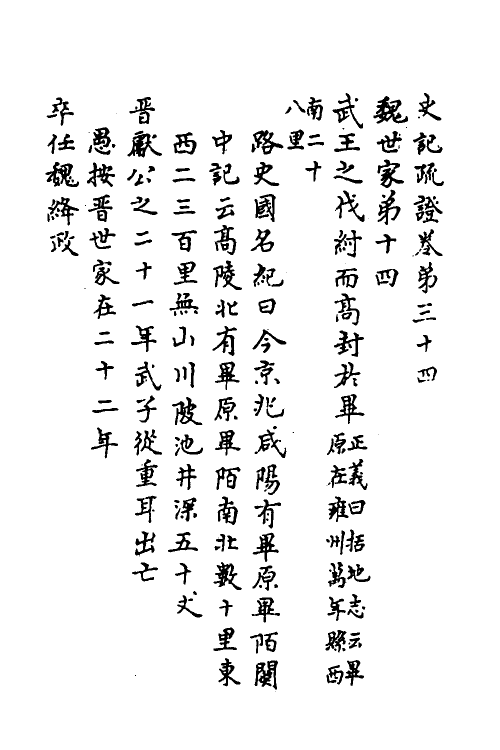 史記疏證卷第三十四
魏世家第十四
武王之伐紂而高封於畢正義曰括地志云畢原在雍州萬年縣西
南二十八里
路史國名紀曰今京兆咸陽有畢原畢陌關
中記云高陵北有畢原畢陌南北數十里東
西二三百里無山川陂池井深五十丈
晋獻公之二十一年武子從重耳出亡
愚按晋世家在二十二年
卒任魏絳政